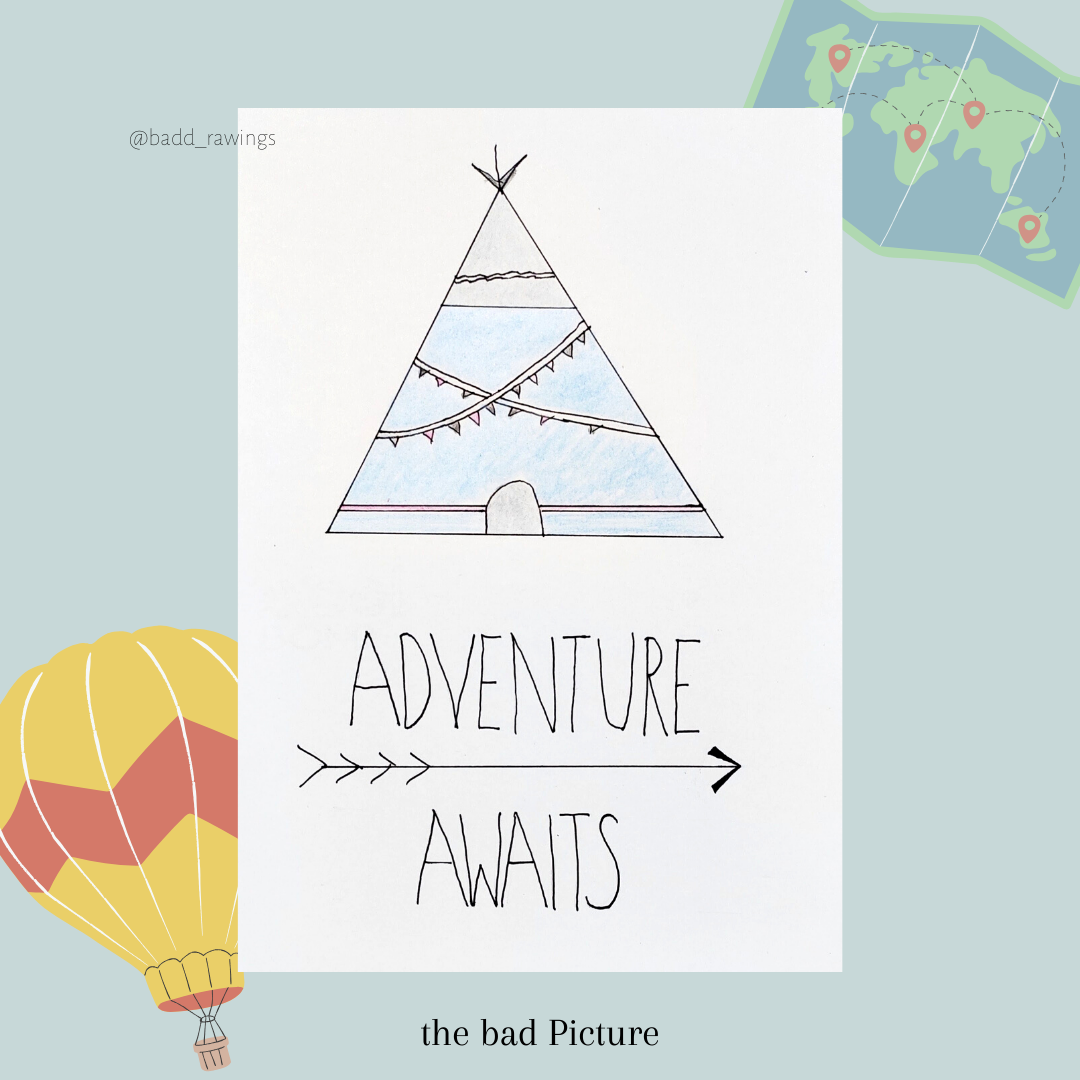 @badd_rawings
ADVENTURE
AWAITS
the bad Picture